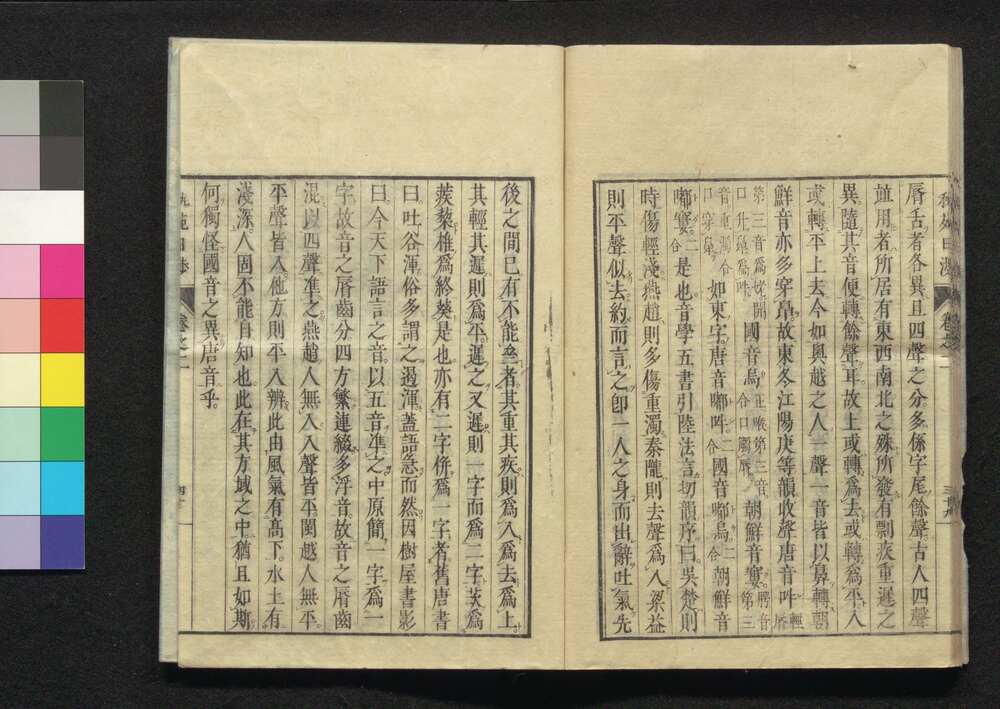 脣舌者各異且四聲之分多係字尾餘聲古人四聲
並用者所居有東西南北之殊所發有剽疾重遲之
異隨其音便轉餘聲耳故上或轉爲去或轉爲平入
或轉平上去今如與越之人一聲一音皆以鼻轉朝
鮮音亦多穿鼻故東冬江陽庚等韻收聲唐音吽輕脣
第三音爲開口
國音烏
正喉第三音合口
朝鮮音
音重濁合口穿鼻
如東字唐音嘟吽二合國音嘟烏二合朝鮮音
嘟二合是也音學五書引陸法言切韻序曰吳楚則
時傷輕淺燕趙則多傷重濁秦隴則去聲爲入梁益
則平聲似去約而言之卽一人之身而出辭吐氣先
卷之二
後之間已有不能者其重其疾則爲入爲去爲上
其輕其遲則爲平遲之又遲則一字而爲二字茨爲
蒺藜椎爲終葵是也亦有二字併爲一字者舊唐書
曰吐谷渾俗多謂之退渾蓋語急而然因樹屋書影
曰今天下語言之音以五音準之中原簡一字爲一
字故音之脣齒分四方繁連綴多浮音故音之脣齒
混以四聲準之燕趙人無入入聲皆平閩越人無平
平聲皆入他方則平入辨此由風氣有高下水土有
淺深人固不能自知也此在其方域之中猶且如斯
何獨怪國音之異唐音乎
卷之二
四十